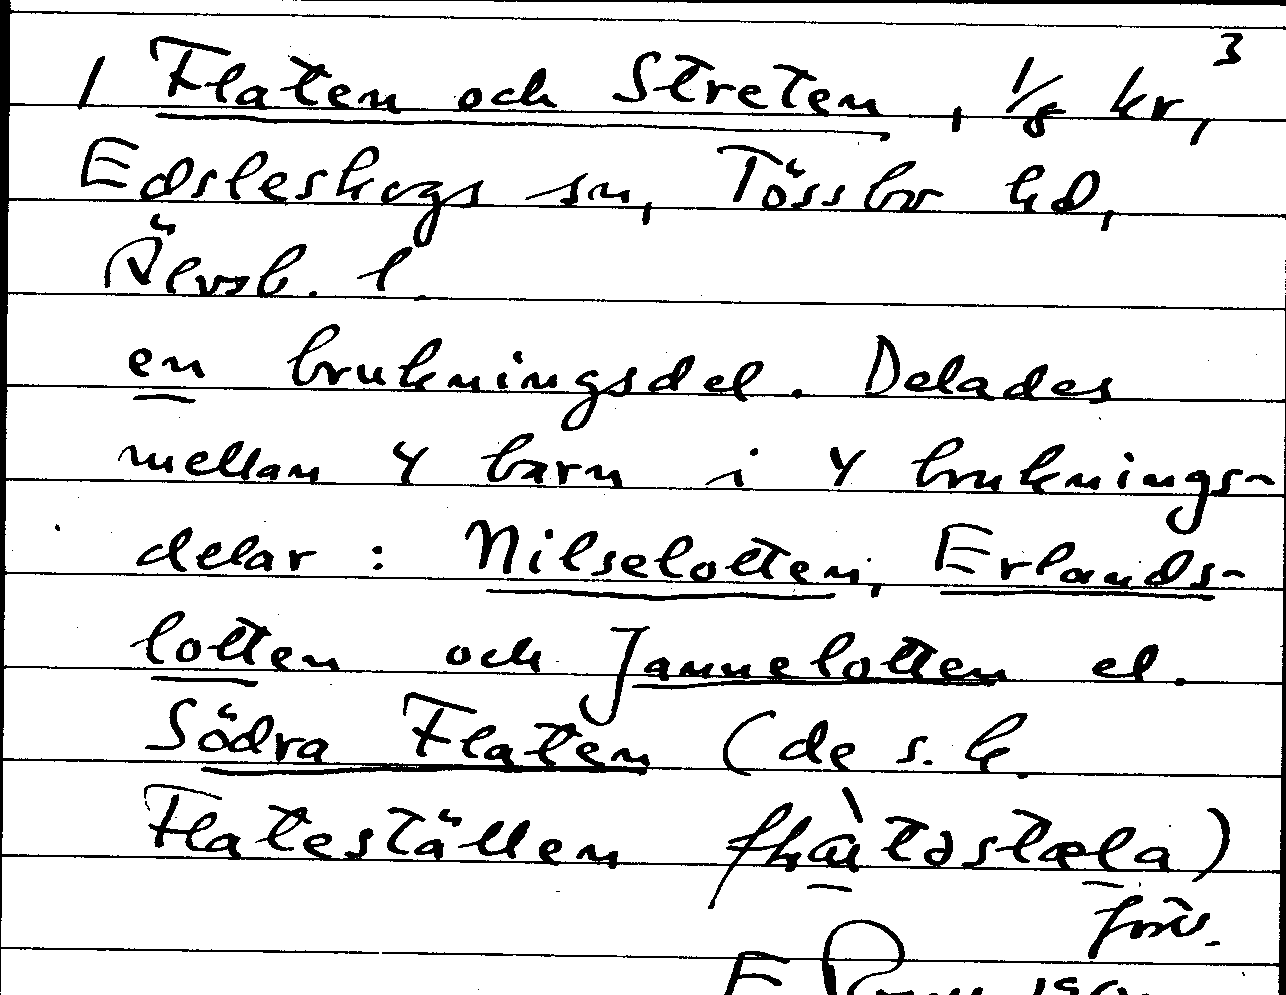 3
1 Flaten och Streten, 1/8 kr,
Edsleskogs sn, Tössbo hd,
Älvsb. l.
en brukningsdel. Delades
mellan 4 barn i 4 bruknings-
delar: Nilselotten, Erlands-
lotten och Jannelotten el.
Södra Flaten (de s. k.
Flateställen